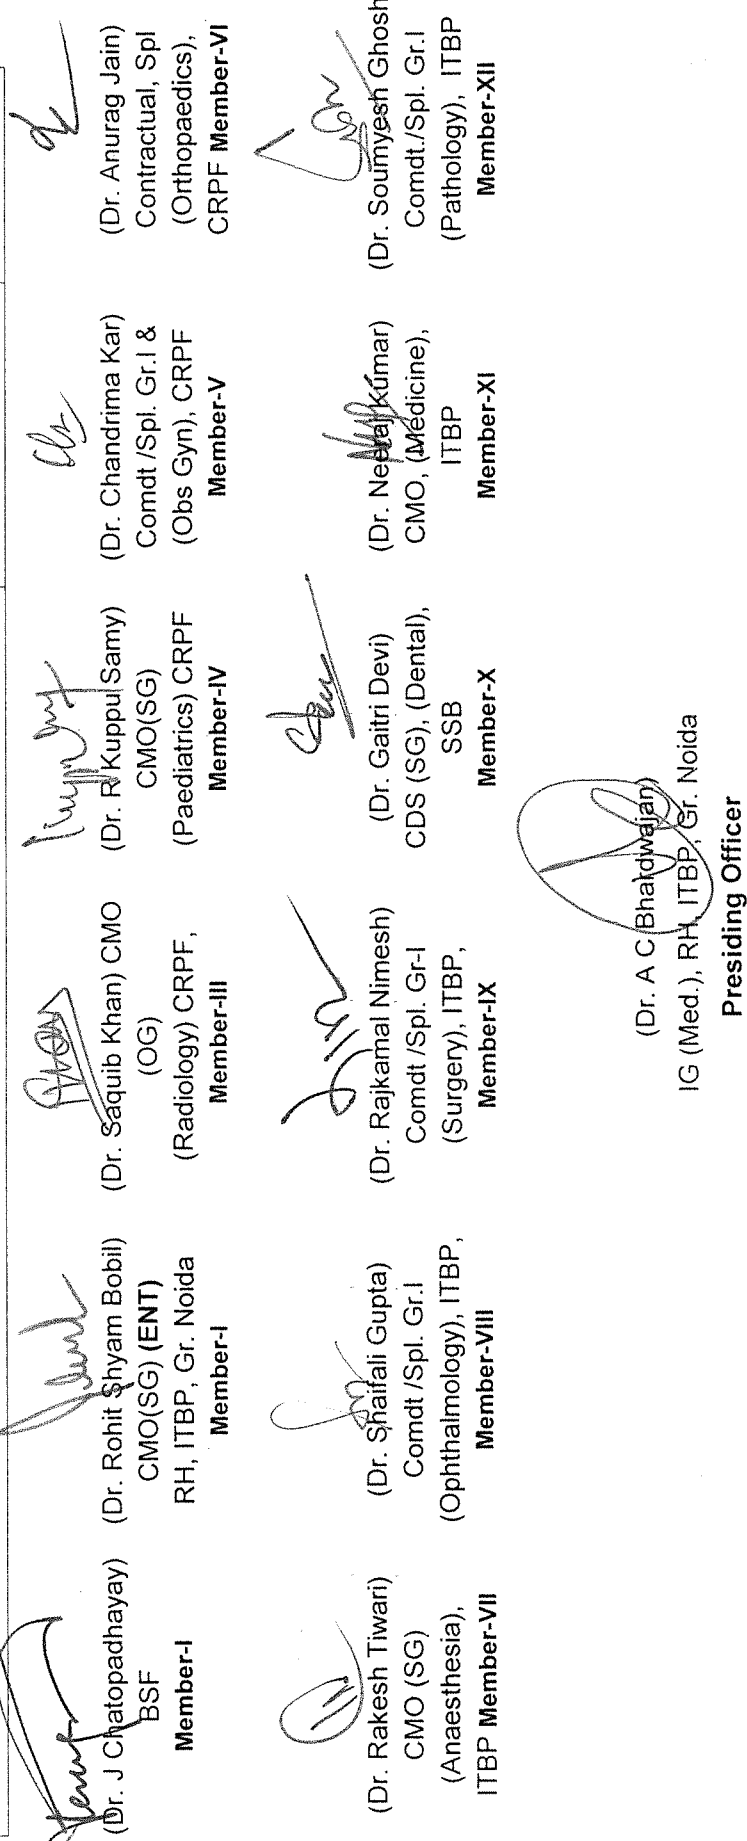 (Dr. J Chatopadhayay)
BSF
Member-I
(Dr. Rohit Shyam Bobil)
CMO(SG) (ENT)
RH, ITBP, Gr. Noida
Member-I
(Dr. Saquib Khan) CMO
(OG)
(Radiology) CRPF,
Member-III
(Dr. R Kuppu Samy)
CMO(SG)
(Paediatrics) CRPF
Member-IV
(Dr. Chandrima Kar)
Comdt /Spl. Gr.I &
(Obs Gyn), CRPF
Member-V
(Dr. Anurag Jain)
Contractual, Spl
(Orthopaedics),
CRPF Member-VI
(Dr. Rakesh Tiwari)
CMO (SG)
(Anaesthesia),
ITBP Member-VII
(Dr. Shaifali Gupta)
Comdt /Spl. Gr.I
(Ophthalmology), ITBP,
Member-VIII
(Dr. Rajkamal Nimesh)
Comdt /Spl. Gr-I
(Surgery), ITBP,
Member-IX
(Dr. Gaitri Devi)
CDS (SG), (Dental),
SSB
Member-X
(Dr. Neeraj Kumar)
CMO, (Medicine),
ITBP
Member-XI
(Dr. Soumyesh Ghosh
Comdt./Spl. Gr.I
(Pathology), ITBP
Member-XII
(Dr. A C Bhardwajan)
IG (Med.), RH, ITBP, Gr. Noida
Presiding Officer